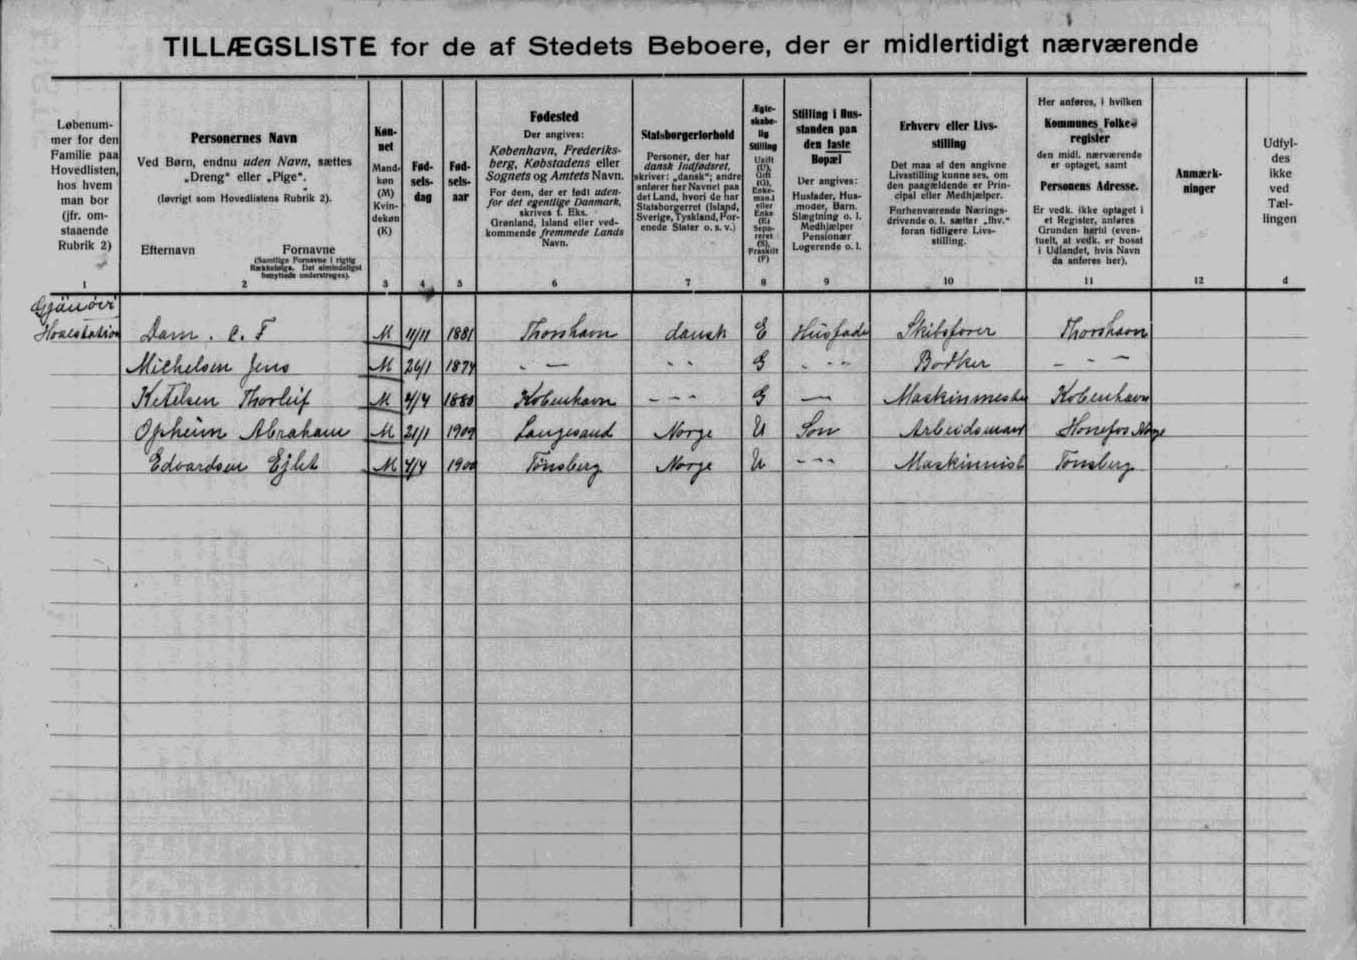 TILLÆGSLISTE for de af Stedets Beboere, der er midlertidigt nærværende
Løbenum-
mer for den
Familie paa
Hovedlisten,
hos hvem
man bor
(jfr. om-
staaende
Rubrik 2)
1
Personernes Navn
Ved Børn, endnu uden Navn, sættes
„Dreng“ eller „Pige“.
(Iøvrigt som Hovedlistens Rubrik 2).
Efternavn Fornavne
(Samtlige Fornavne i rigtig
Rækkefølge. Det almindeligst
benyttede understreges).
2
Køn-
net
Mand-
køn
(M)
Kvin-
dekøn
(K)
3
Fød-
sels-
dag
4
Fød-
sels-
aar
5
Fødested
Der angives:
København, Frederiks-
berg, Købstadens eller
Sognets og Amtets Navn.
For dem, der er født uden-
for det egentlige Danmark,
skrives f. Eks.
Grønland, Island eller ved-
kommende fremmede Lands
Navn.
6
Statsborgerforhold
Personer, der har
dansk Indfødsret,
skriver: „dansk“; andre
anfører her Navnet paa
det Land, hvori de har
Statsborgerret (Island,
Sverige, Tyskland, For-
enede Stater o. s. v.)
7
Ægte-
skabe-
lig
Stilling
Ugift
(U),
Gift
(G),
Enke-
mand
eller
Enke
(E)
Sepa-
reret
(S),
Fraskilt
(F)
8
Stilling i Hus-
standen paa
den faste
Bopæl
Der angives:
Husfader, Hus-
moder, Barn,
Slægtning o. l.
Medhjælper
Pensionær
Logerende o. l.
9
Erhverv eller Livs-
stilling
Det maa af den angivne
Livsstilling kunne ses, om
den paagældende er Prin-
cipal eller Medhjælper.
Forhenværende Nærings-
drivende o. l. sætter „fhv.“
foran tidligere Livs-
stilling.
10
Her anføres, i hvilken
Kommunes Folke-
register
den midl. nærværende
er optaget, samt
Personens Adresse.
Er vedk. ikke optaget i
et Register, anføres
Grunden hertil (even-
tuelt, at vedk. er bosat
i Udlandet, hvis Navn
da anføres her).
11
Anmærk-
ninger
12
Udfyl-
des
ikke
ved
Tæl-
lingen
d
Hvalstation Dam. C. F M 11/11 1881 Thorshavn dansk E Husfade Skibsfører Thorshavn
Michelsen Jens M 26/1 1874 - — - - G - - - Bødker - — -
Ketelsen Thorleif M 4/4 1880 København - - - G — Maskinmeste København
Opheim Abraham M 21/1 1909 Langesund Norge U Søn Arbeidsmand Hønefos Norge
Edvardsen Ejlet M 4/4 1900 Tønsberg Norge U - - - Maskinnist Tønsberg